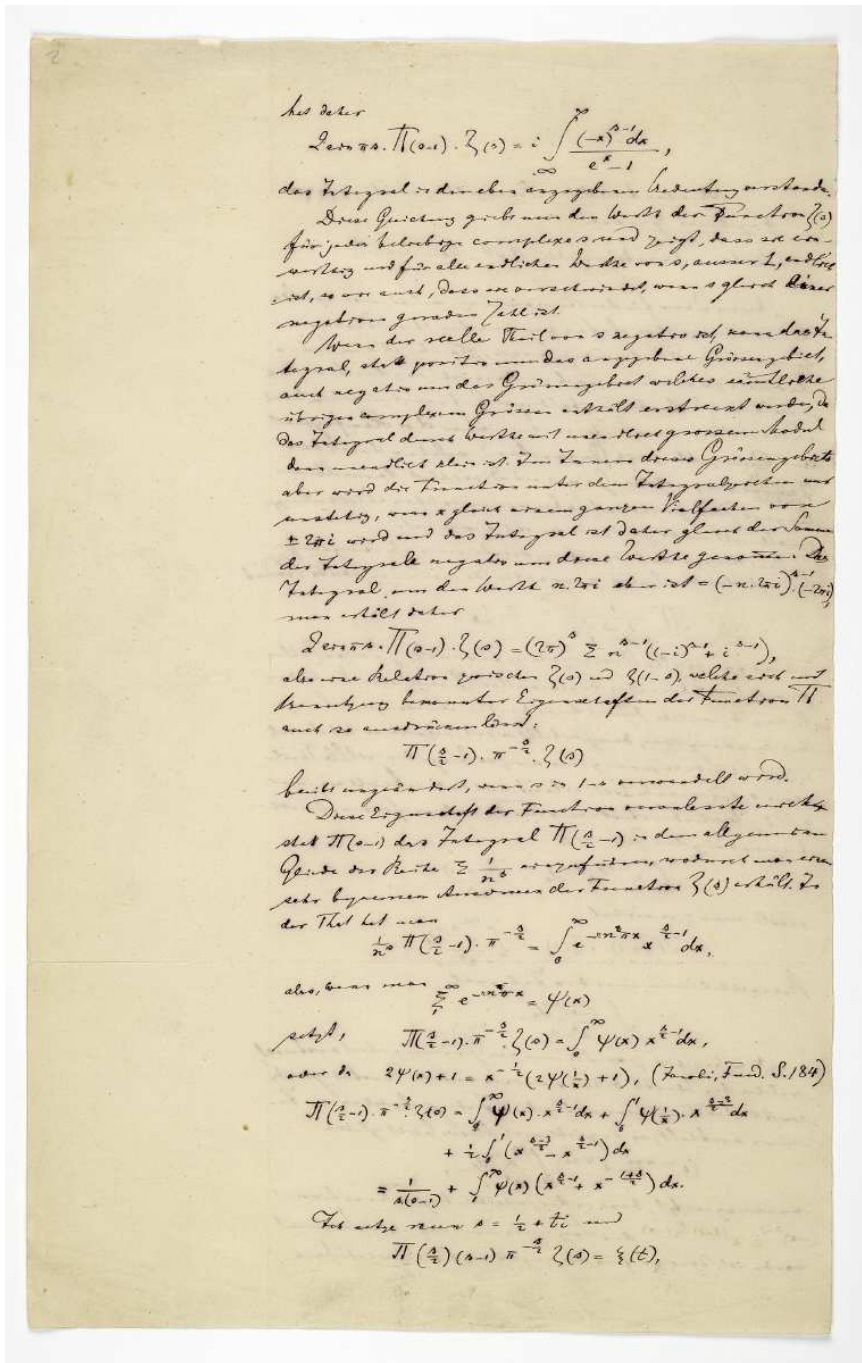 2
hat daher
2 sin πs. Π(s-1). ζ(s) = i ∫_∞^∞ (-x)^{s-1}dx / (e^x - 1),
das Integral in der eben angegebenen Bedeutung verstanden.
Diese Gleichung giebt nun den Werth der Function ζ(s)
für jedes beliebige complexe s und zeigt, dass sie ein-
werthig und für alle endlichen Werthe von s, ausser 1, endlich
ist, so wie auch, dass sie verschwindet, wenn s gleich einer
negativen geraden Zahl ist.
Wenn der reelle Theil von s negativ ist, kann das In-
tegral, statt positiv um das angegebene Grössengebiet,
auch negativ um das Grössengebiet welches sämtliche
übrigen complexen Grössen enthält erstreckt werden, da
das Integral durch Werthe mit unendlich grossem Modul
dann unendlich klein ist. Im Innern dieses Grössengebiets
aber wird die Function unter dem Integralzeichen nur
unstetig, wenn x gleich einem ganzen Vielfachen von
± 2πi wird und das Integral ist daher gleich der Summe
der Integrale negativ um diese Werthe genommen. Das
Integral um den Werth n.2πi aber ist = (-n.2πi)^{s-1}(-2πi),
man erhält daher
2 sin πs. Π(s-1). ζ(s) = (2π)^s Σ n^{s-1}((-i)^{s-1} + i^{s-1}),
also eine Relation zwischen ζ(s) und ζ(1-s), welche sich mit
Benutzung bekannter Eigenschaften der Function Π
auch so ausdrücken lässt:
Π(s/2 -1). π^{-s/2}. ζ(s)
bleibt ungeändert, wenn s in 1-s verwandelt wird.
Diese Eigenschaft der Function veranlasste mich
statt Π(s-1) das Integral Π(s/2 -1) in dem allgemeinen
Gliede der Reihe Σ 1/n^s einzuführen, wodurch man einen
sehr bequemen Ausdruck der Function ζ(s) erhält. In
der That hat man
1/n^s Π(s/2 -1). π^{-s/2} = ∫_0^∞ e^{-n²πx} x^{s/2 -1} dx,
also, wenn man Σ_1^∞ e^{-n²πx} = ψ(x)
setzt, Π(s/2 -1). π^{-s/2}. ζ(s) = ∫_0^∞ ψ(x) x^{s/2 -1} dx,
oder da 2ψ(x)+1 = x^{-1/2}(2ψ(1/x) + 1), (Jacobi, Fund. S. 184)
Π(s/2 -1). π^{-s/2}. ζ(s) = ∫_1^∞ ψ(x). x^{s/2 -1} dx + ∫_0^1 ψ(1/x). x^{(s-3)/2} dx
+ 1/2 ∫_0^1 (x^{(s-3)/2} - x^{s/2 -1}) dx
= 1/(s(s-1)) + ∫_1^∞ ψ(x) (x^{s/2 -1} + x^{-(1+s)/2}) dx.
Ich setze nun s = 1/2 + ti und
Π(s/2) (s-1) π^{-s/2} ζ(s) = ξ(t),